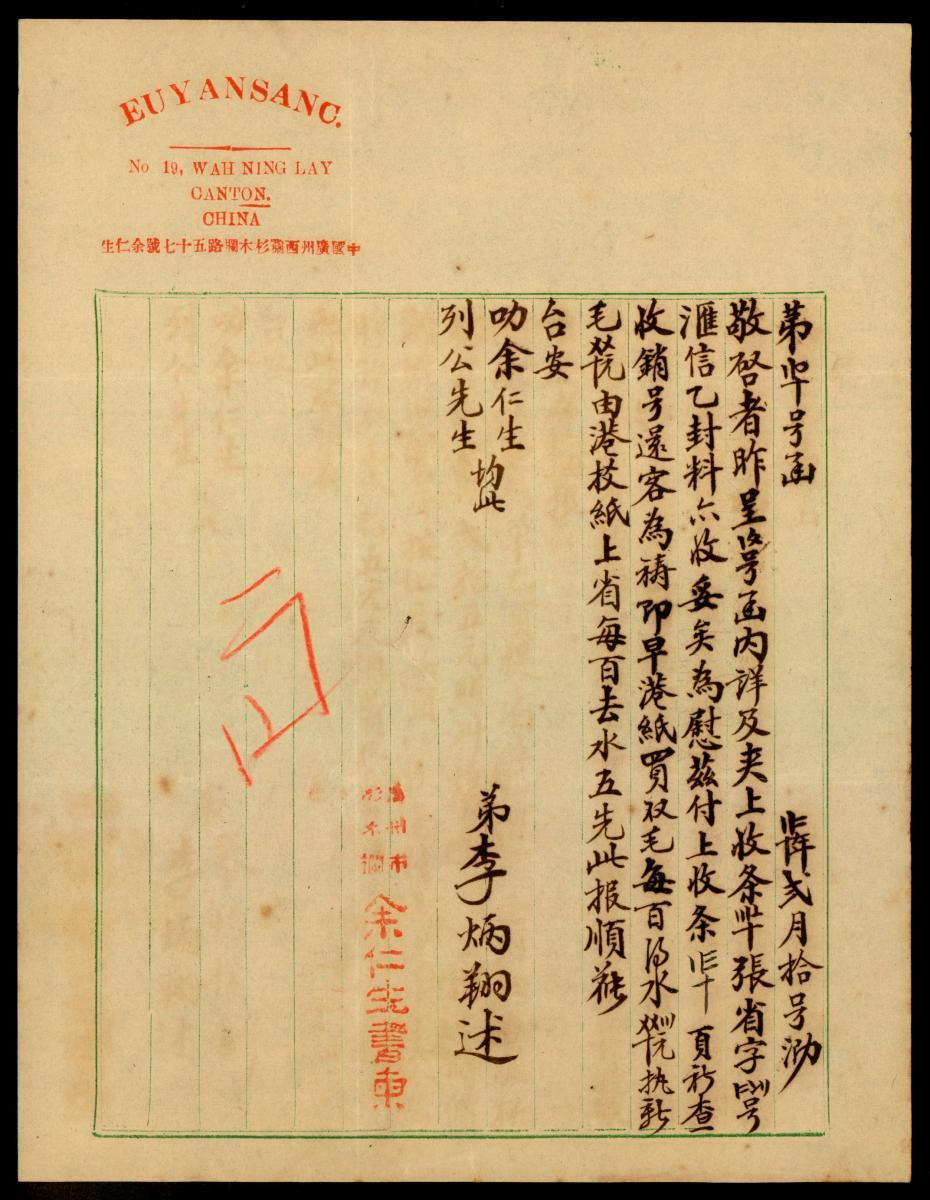 EUYANSANG.
No 19, WAH NING LAY
CANTON.
CHINA
中國廣州西關杉木欄路五十七號余仁生
第 号函 年弍月拾号泐
敬啓者昨呈 号函內詳及夹上收条 張省字 号
滙信乙封料亦收妥矣為慰茲付上收条 頁祈查
收銷号還客為祷即早港紙買双毛每百 水 执新
毛 由港杸紙上省每百去水五先此报順 
台安
叻余仁生
列公先生 均此
弟李炳翔述
廣州市
杉木欄
余仁生書柬